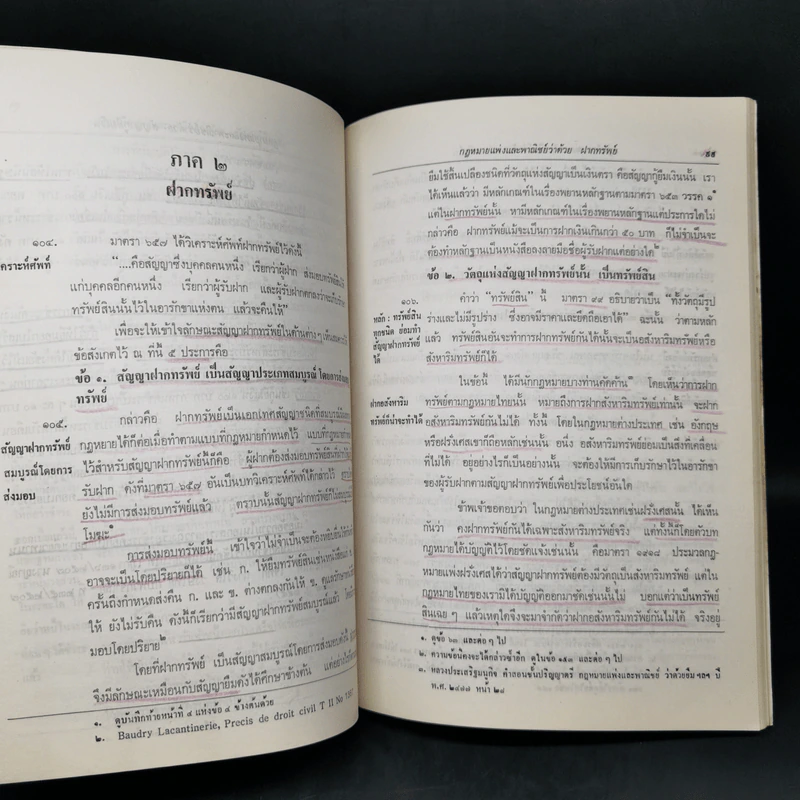 ภาค ๒
ฝากทรัพย์
๑๐๔. มาตรา ๖๕๗ ได้วิเคราะห์ศัพท์ฝากทรัพย์ไว้ดังนี้
เคราะห์ศัพท์ "....คือสัญญาซึ่งบุคคลคนหนึ่ง เรียกว่าผู้ฝาก ส่งมอบทรัพย์สินให้
แก่บุคคลอีกคนหนึ่ง เรียกว่าผู้รับฝาก และผู้รับฝากตกลงว่าจะเก็บรักษา
ทรัพย์สินนั้นไว้ในอารักขาแห่งตน แล้วจะคืนให้"
เพื่อจะให้เข้าใจลักษณะสัญญาฝากทรัพย์ในด้านต่างๆ
ข้อสังเกตไว้ ณ ที่นี้ ๕ ประการคือ
ข้อ ๑. สัญญาฝากทรัพย์ เป็นสัญญาประเภทสมบูรณ์ โดยการส่งมอบ
ทรัพย์
๑๐๕. กล่าวคือ ฝากทรัพย์เป็นเอกเทศสัญญาชนิดที่สมบูรณ์
สัญญาฝากทรัพย์ กฎหมายได้ก็ต่อเมื่อทำตามแบบที่กฎหมายกำหนดไว้ แบบที่กฎหมาย
สมบูรณ์โดยการ ไว้สำหรับสัญญาฝากทรัพย์นี้ก็คือ ผู้ฝากต้องส่งมอบทรัพย์สินที่
ส่งมอบ รับฝาก ดังที่มาตรา ๖๕๗ อันเป็นบทวิเคราะห์ศัพท์ได้กล่าวไว้
ยังไม่มีการส่งมอบทรัพย์แล้ว ตราบนั้นสัญญาฝากทรัพย์ก็ไม่
โมฆะ๑
การส่งมอบทรัพย์นี้ เข้าใจว่าไม่จำเป็นจะต้องหยิบยื่นให้
อาจจะเป็นโดยปริยายก็ได้ เช่น ก. ให้ยืมทรัพย์สินเช่นหนังสือแก่ ข.
ครั้นถึงกำหนดส่งคืน ก. และ ข. ต่างตกลงกันให้ ข. ดูแลรักษา
ให้ ยังไม่รับคืน ดังนี้ก็เรียกว่ามีสัญญาฝากทรัพย์สมบูรณ์แล้ว
มอบโดยปริยาย๒
โดยที่ฝากทรัพย์ เป็นสัญญาสมบูรณ์โดยการส่งมอบดังนี้
จึงมีลักษณะเหมือนกับสัญญายืมดังได้ศึกษาข้างต้น แต่อย่างไร
๑. ดูบันทึกท้ายหน้าที่ ๔ แห่งข้อ ๔ ข้างต้นด้วย
๒. Baudry Lacantinerie, Precis de droit civil T II No
กฎหมายแพ่งและพาณิชย์ว่าด้วย ฝากทรัพย์ ๕๕
ยืมใช้สิ้นเปลืองชนิดที่วัตถุแห่งสัญญาเป็นเงินตรา คือสัญญากู้ยืมเงินนั้น เรา
ได้เห็นแล้วว่า มีหลักเกณฑ์ในเรื่องพยานหลักฐานตามมาตรา ๖๕๓ วรรค ๑๑
แต่ในฝากทรัพย์นั้น หามีหลักเกณฑ์ในเรื่องพยานหลักฐานแต่ประการใดไม่
กล่าวคือ ฝากทรัพย์แม้จะเป็นการฝากเงินเกินกว่า ๕๐ บาท ก็ไม่จำเป็นจะ
ต้องทำหลักฐานเป็นหนังสือลงลายมือชื่อผู้รับฝากแต่อย่างใด๒
ข้อ ๒. วัตถุแห่งสัญญาฝากทรัพย์นั้น เป็นทรัพย์สิน
๑๐๖. คำว่า "ทรัพย์สิน" นี้ มาตรา ๙๙ อธิบายว่าเป็น "ทั้งวัตถุมีรูป
หลัก : ทรัพย์สิน ร่างและไม่มีรูปร่าง ซึ่งอาจมีราคาและยึดถือเอาได้" ฉะนั้น ว่าตามหลัก
ทุกชนิด ย่อมทำ แล้ว ทรัพย์สินอันจะทำการฝากทรัพย์กันได้นั้นจะเป็นอสังหาริมทรัพย์หรือ
สัญญาฝากทรัพย์ สังหาริมทรัพย์ก็ได้
ได้
ในข้อนี้ ได้มีนักกฎหมายบางท่านคัดค้าน๓ โดยเห็นว่าการฝาก
ฝากอสังหาริม ทรัพย์ตามกฎหมายไทยนั้น หมายถึงการฝากสังหาริมทรัพย์เท่านั้น จะฝาก
ทรัพย์ก็น่าจะทำได้ อสังหาริมทรัพย์กันไม่ได้ ทั้งนี้ โดยในกฎหมายต่างประเทศ เช่น อังกฤษ
หรือฝรั่งเศสเขาก็ถือหลักเช่นนั้น อนึ่ง อสังหาริมทรัพย์ย่อมเป็นสิ่งที่เคลื่อน
ที่ไม่ได้ อยู่อย่างไรก็เป็นอย่างนั้น จะต้องให้มีการเก็บรักษาไว้ในอารักขา
ของผู้รับฝากตามสัญญาฝากทรัพย์เพื่อประโยชน์อันใด
ข้าพเจ้าขอตอบว่า ในกฎหมายต่างประเทศเช่นฝรั่งเศสนั้น ได้เห็น
กันว่า คงฝากทรัพย์กันได้เฉพาะสังหาริมทรัพย์จริง แต่ทั้งนี้ก็โดยตัวบท
กฎหมายได้บัญญัติไว้โดยชัดแจ้งเช่นนั้น คือมาตรา ๑๙๑๘ ประมวลกฎ-
หมายแพ่งฝรั่งเศสได้ว่าสัญญาฝากทรัพย์ต้องมีวัตถุเป็นสังหาริมทรัพย์ แต่ใน
กฎหมายไทยของเรามิได้บัญญัติออกมาชัดเช่นนั้นไม่ บอกแต่ว่าเป็นทรัพย์
สินเฉย ๆ แล้วเหตุใดจึงจะมาจำกัดว่าฝากอสังหาริมทรัพย์กันไม่ได้ จริงอยู่
๑. ดูข้อ ๖๓ และต่อ ๆ ไป
๒. ความข้อนี้คงจะได้กล่าวซ้ำอีก ดูในข้อ ๑๕๓ และต่อ ๆ ไป
๓. หลวงประเสริฐมนูกิจ คำสอนชั้นปริญญาตรี กฎหมายแพ่งและพาณิชย์ ว่าด้วยยืม ฯลฯ ปี
พ.ศ. ๒๔๗๗ หน้า ๒๘